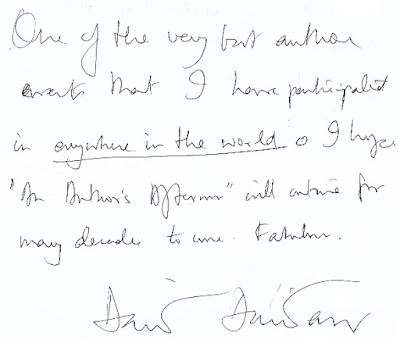 One of the very best author
events that I have participated
in anywhere in the world & I hope
"An Author's Afternoon" will continue for
many decades to come. Fabulous.